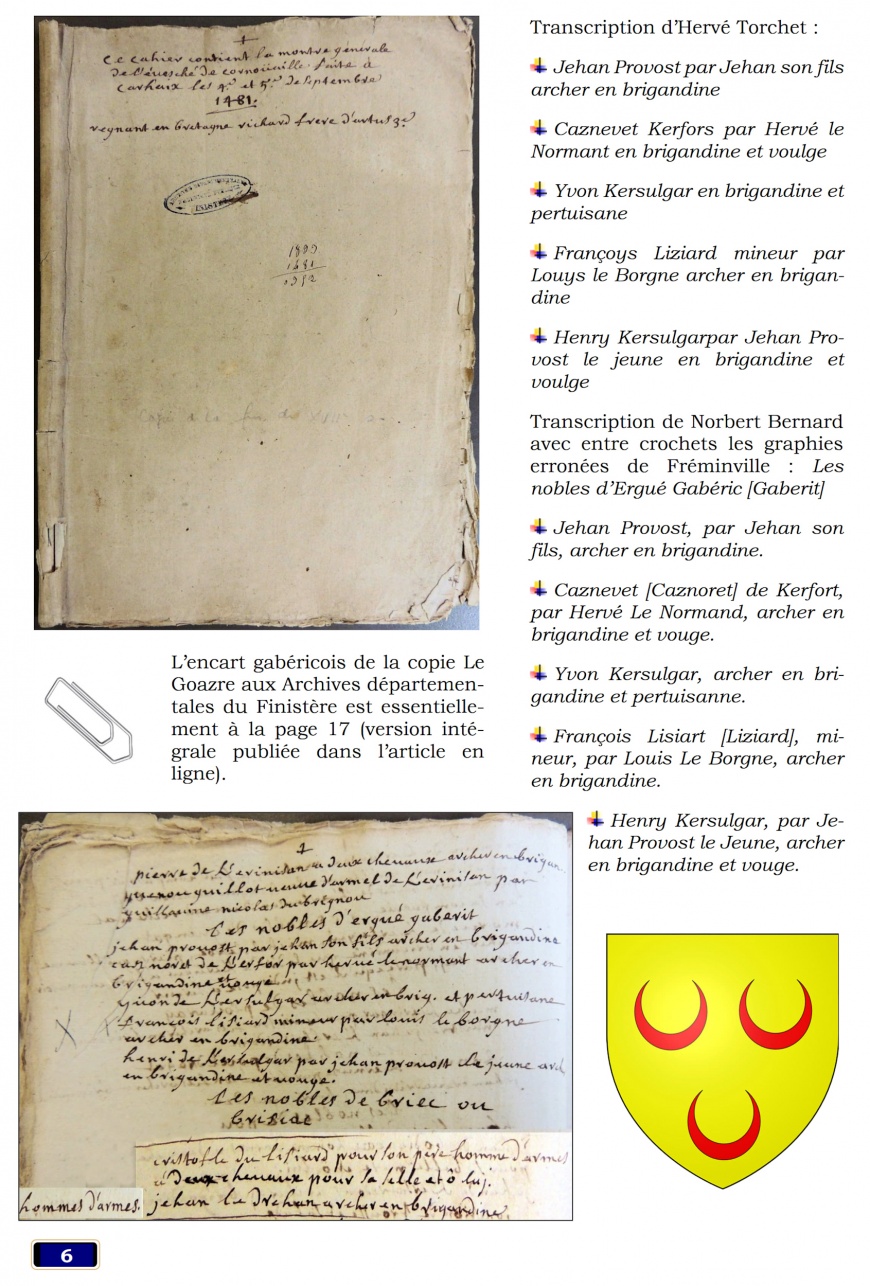 +
Ce cahier contient la montre générale
de l'évesché de cornoüaille faite à
Carhaix les 4.e et 5.e de Septembre
1481.
regnant en bretagne richard frere d'artus 3.e
1899
1481
Transcription d'Hervé Torchet :
Jehan Provost par Jehan son fils
archer en brigandine
Caznevet Kerfors par Hervé le
Normant en brigandine et voulge
Yvon Kersulgar en brigandine et
pertuisane
Françoys Liziard mineur par
Louys le Borgne archer en brigan-
dine
Henry Kersulgarpar Jehan Pro-
vost le jeune en brigandine et
voulge
Transcription de Norbert Bernard
avec entre crochets les graphies
erronées de Fréminville : Les
nobles d'Ergué Gabéric [Gaberit]
Jehan Provost, par Jehan son
fils, archer en brigandine.
Caznevet [Caznoret] de Kerfort,
par Hervé Le Normand, archer en
brigandine et vouge.
Yvon Kersulgar, archer en bri-
gandine et pertuisanne.
François Lisiart [Liziard], mi-
neur, par Louis Le Borgne, archer
en brigandine.
Henry Kersulgar, par Je-
han Provost le Jeune, archer
en brigandine et vouge.
L'encart gabéricois de la copie Le
Goazre aux Archives départemen-
tales du Finistère est essentielle-
ment à la page 17 (version inté-
grale publiée dans l'article en
ligne).
+
pierre de Kerinisan a deux cheuaux archer en brigan
guillot ueuue d'armel de Kerinisan par
guillaume nicolas du brignou
les nobles d'ergué gaberit
jehan prouost par jehan son fils archer en brigandine
caznoret de Kerfor par herué le normant archer en
brigandine et uouge
yuon de Kersulgar archer en brig. et pertuisane
X françois lisiard mineur par louis le borgne
archer en brigandine
henri de Kersulgar par jehan prouost le jeune arch
en brigandine et uouge.
les nobles de briec ou
briziac
cristofle du lisiard pour son père homme d'armes
a deux cheuaux pour sa selle et o luj.
hommes d'armes. jehan le Drehan archer en brigandine
6